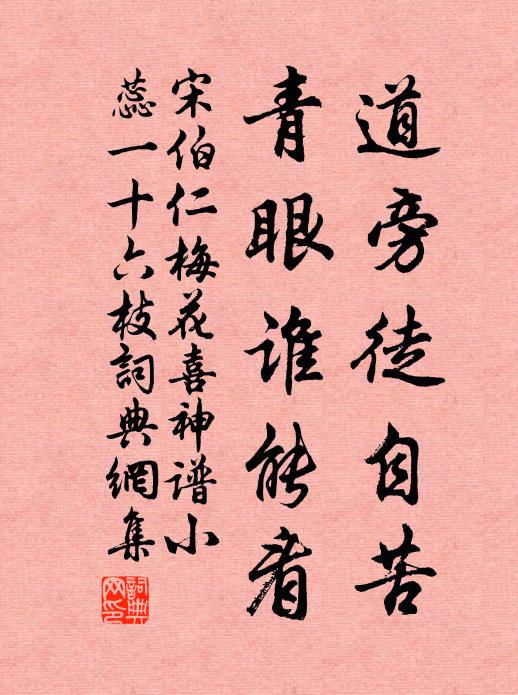 道旁徒自苦
青眼谁能看
宋伯仁梅花喜神谱小
蕊一十六枝詞典網集
詞典网印